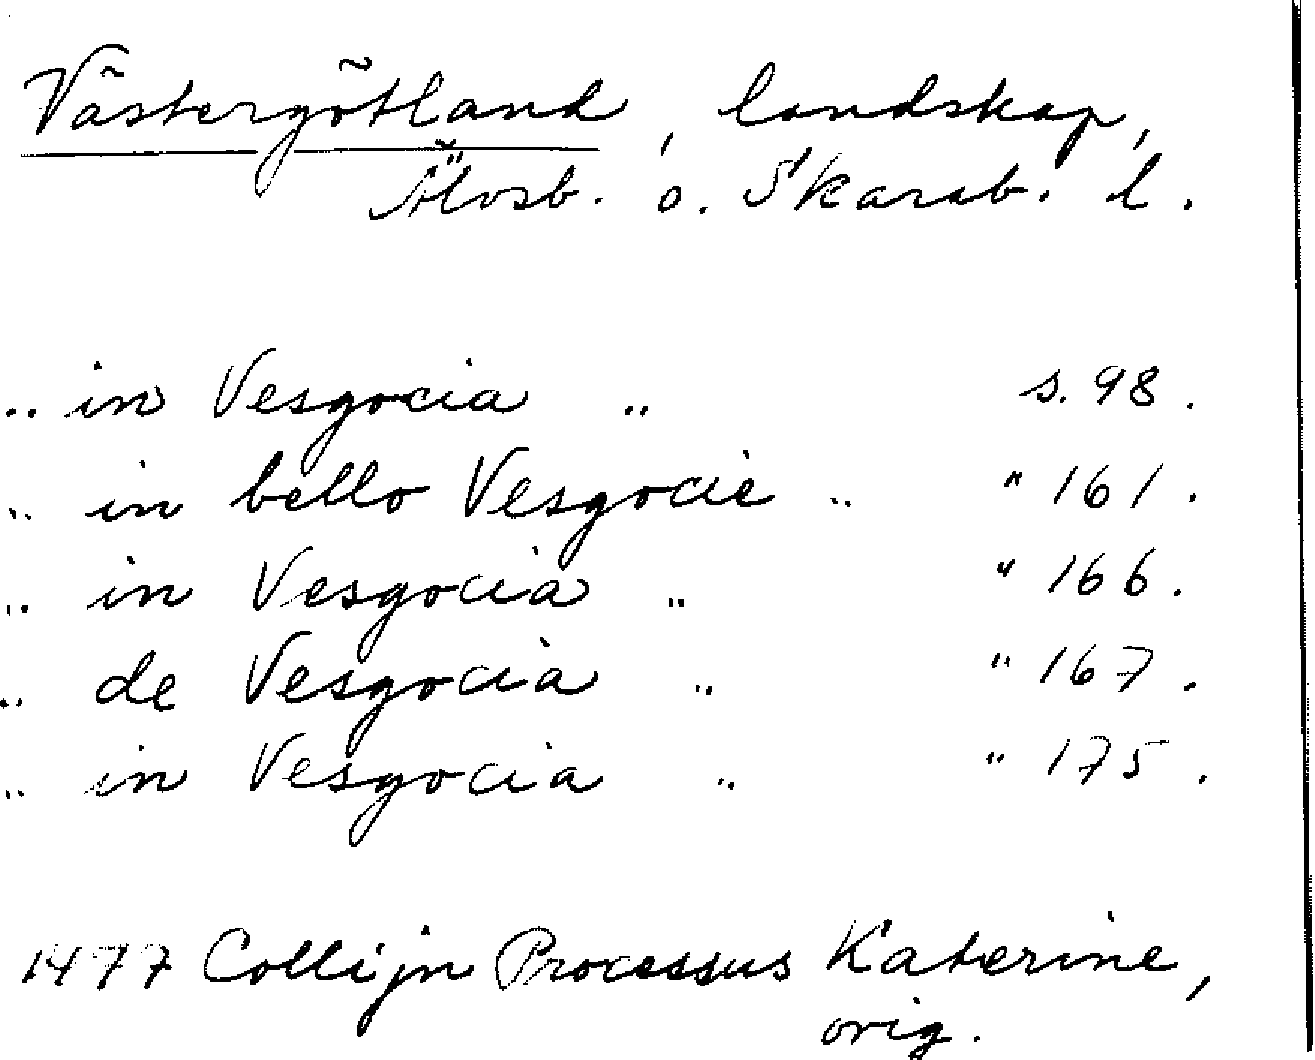 Västergötland, landskap,
Älvsb. o. Skarab. l.
.. in Vesgocia .. s. 98.
.. in bello Vesgocie .. " 161.
.. in Vesgocia .. " 166.
.. de Vesgocia .. " 167.
.. in Vesgocia .. " 175.
1477 Collijn Processus Katerine,
orig.